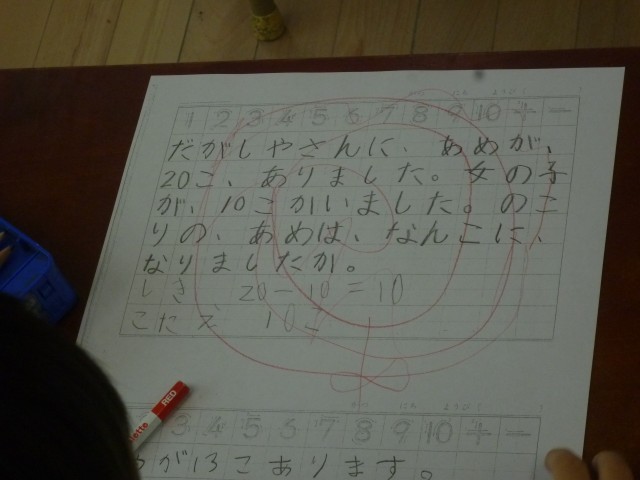 1 2 3 4 5 6 7 8 9 10 + −
だがしやさんに、あめが、
20こ、ありました。女の子
が、10こかいました。のこ
りの、あめは、なんこに、
なりましたか。
しき 20-10=10
こたえ 10こ
RED
3 4 5 6 7 8 9 10 −
が13こあります。